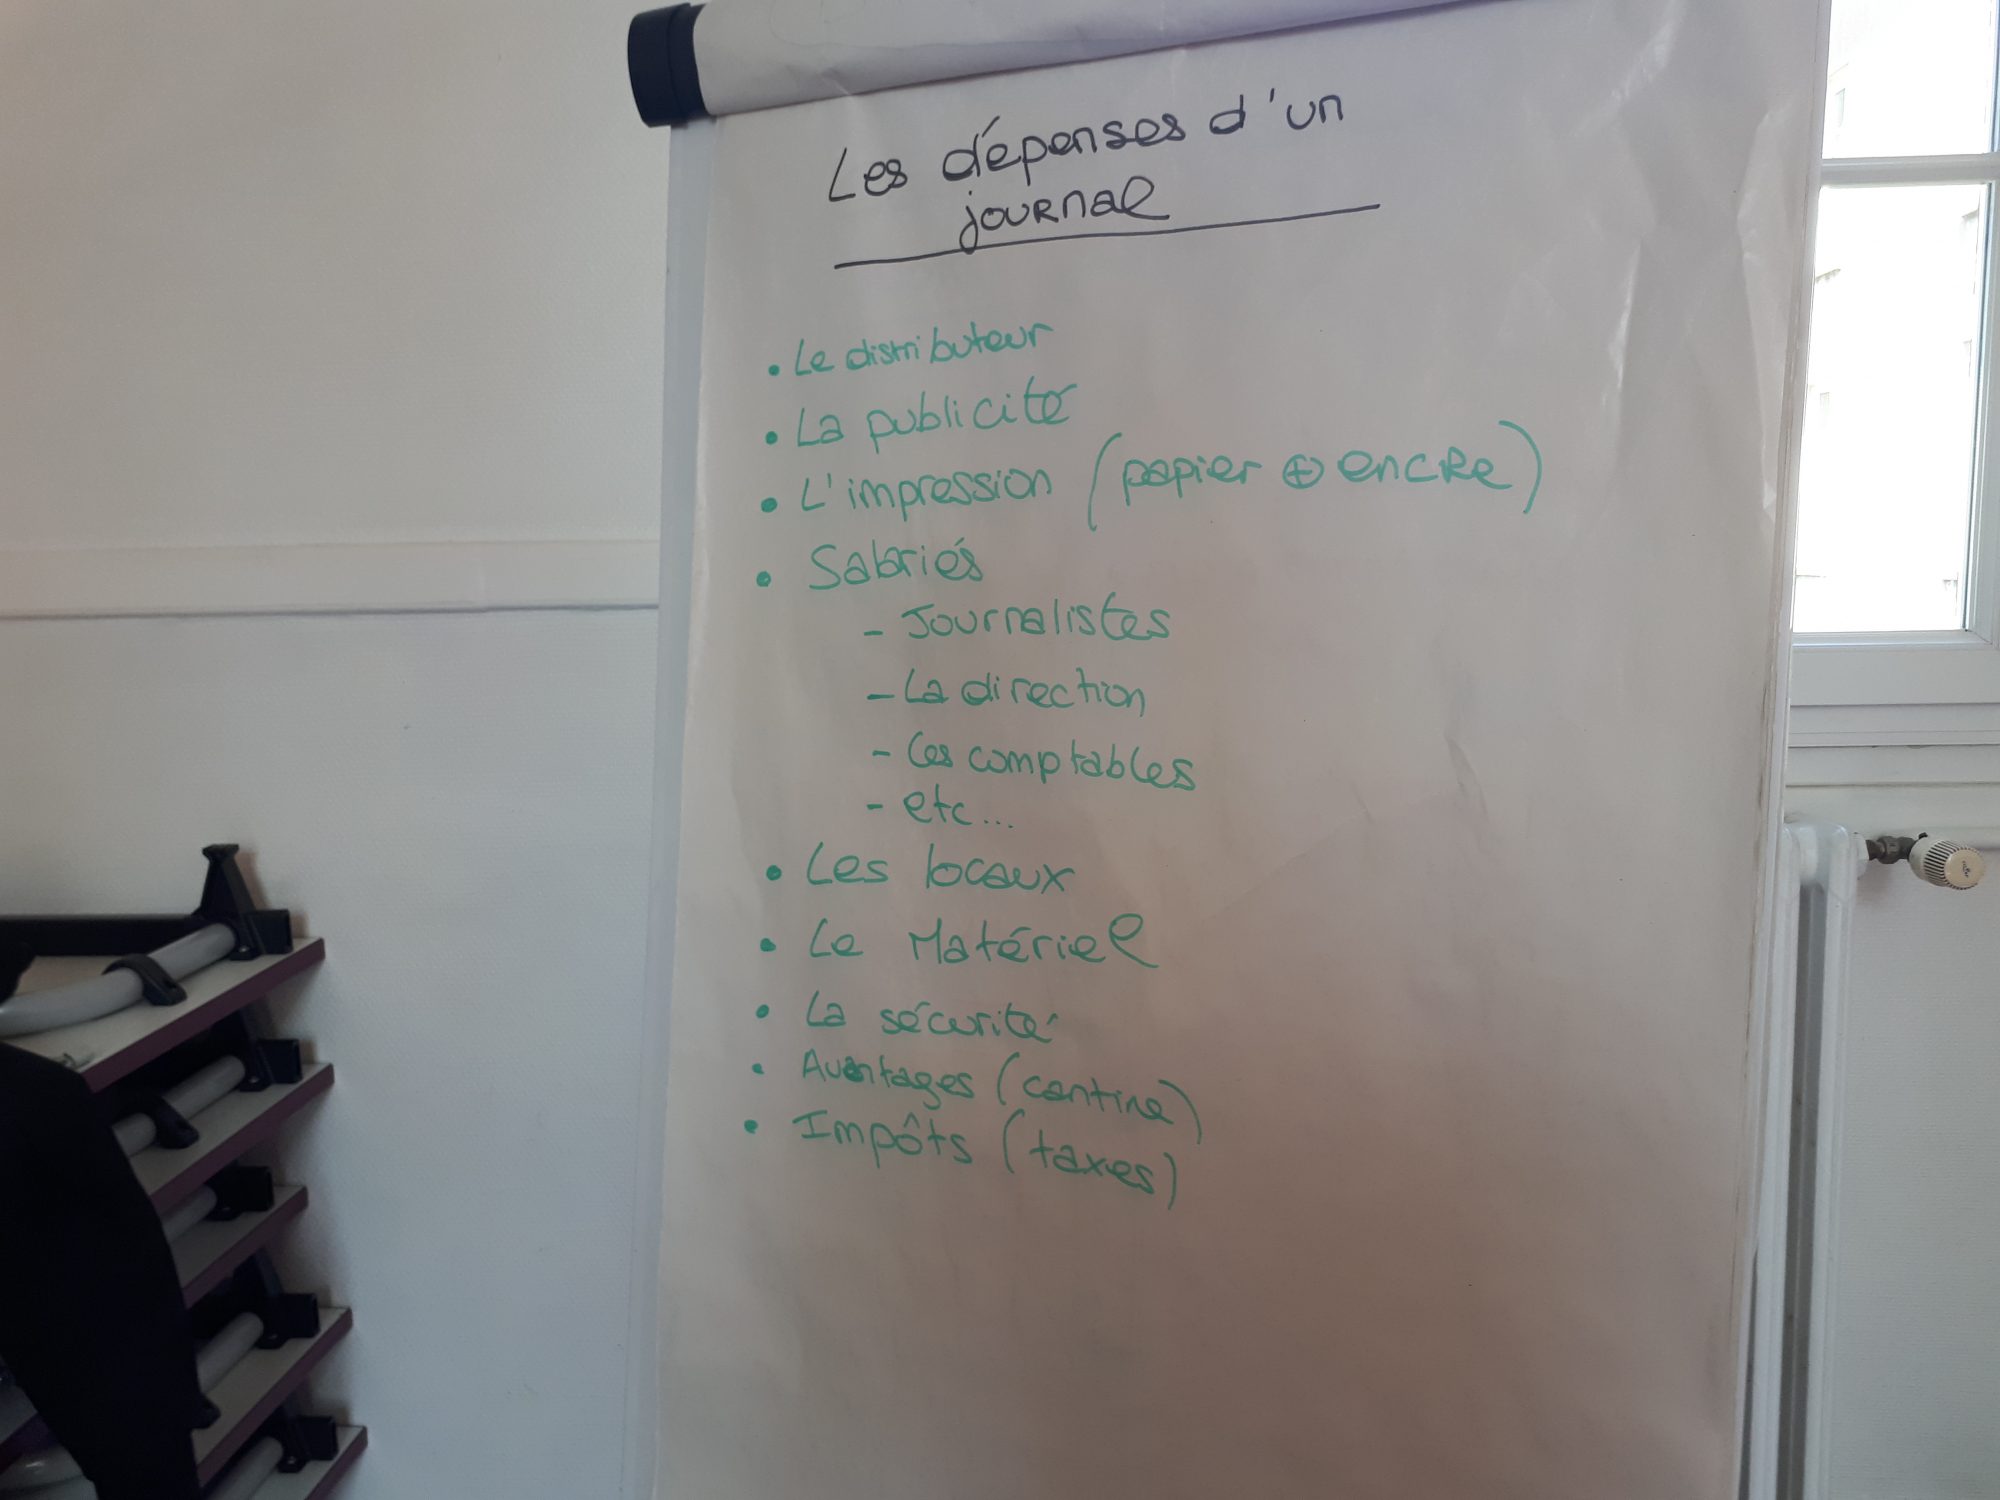 Les dépenses d'un
journal
• Le distributeur
• La publicité
• L'impression (papier ⊕ encre)
• Salariés
- Journalistes
- La direction
- Les comptables
- etc...
• Les locaux
• Le Matériel
• La sécurité
• Avantages (cantine)
• Impôts (taxes)